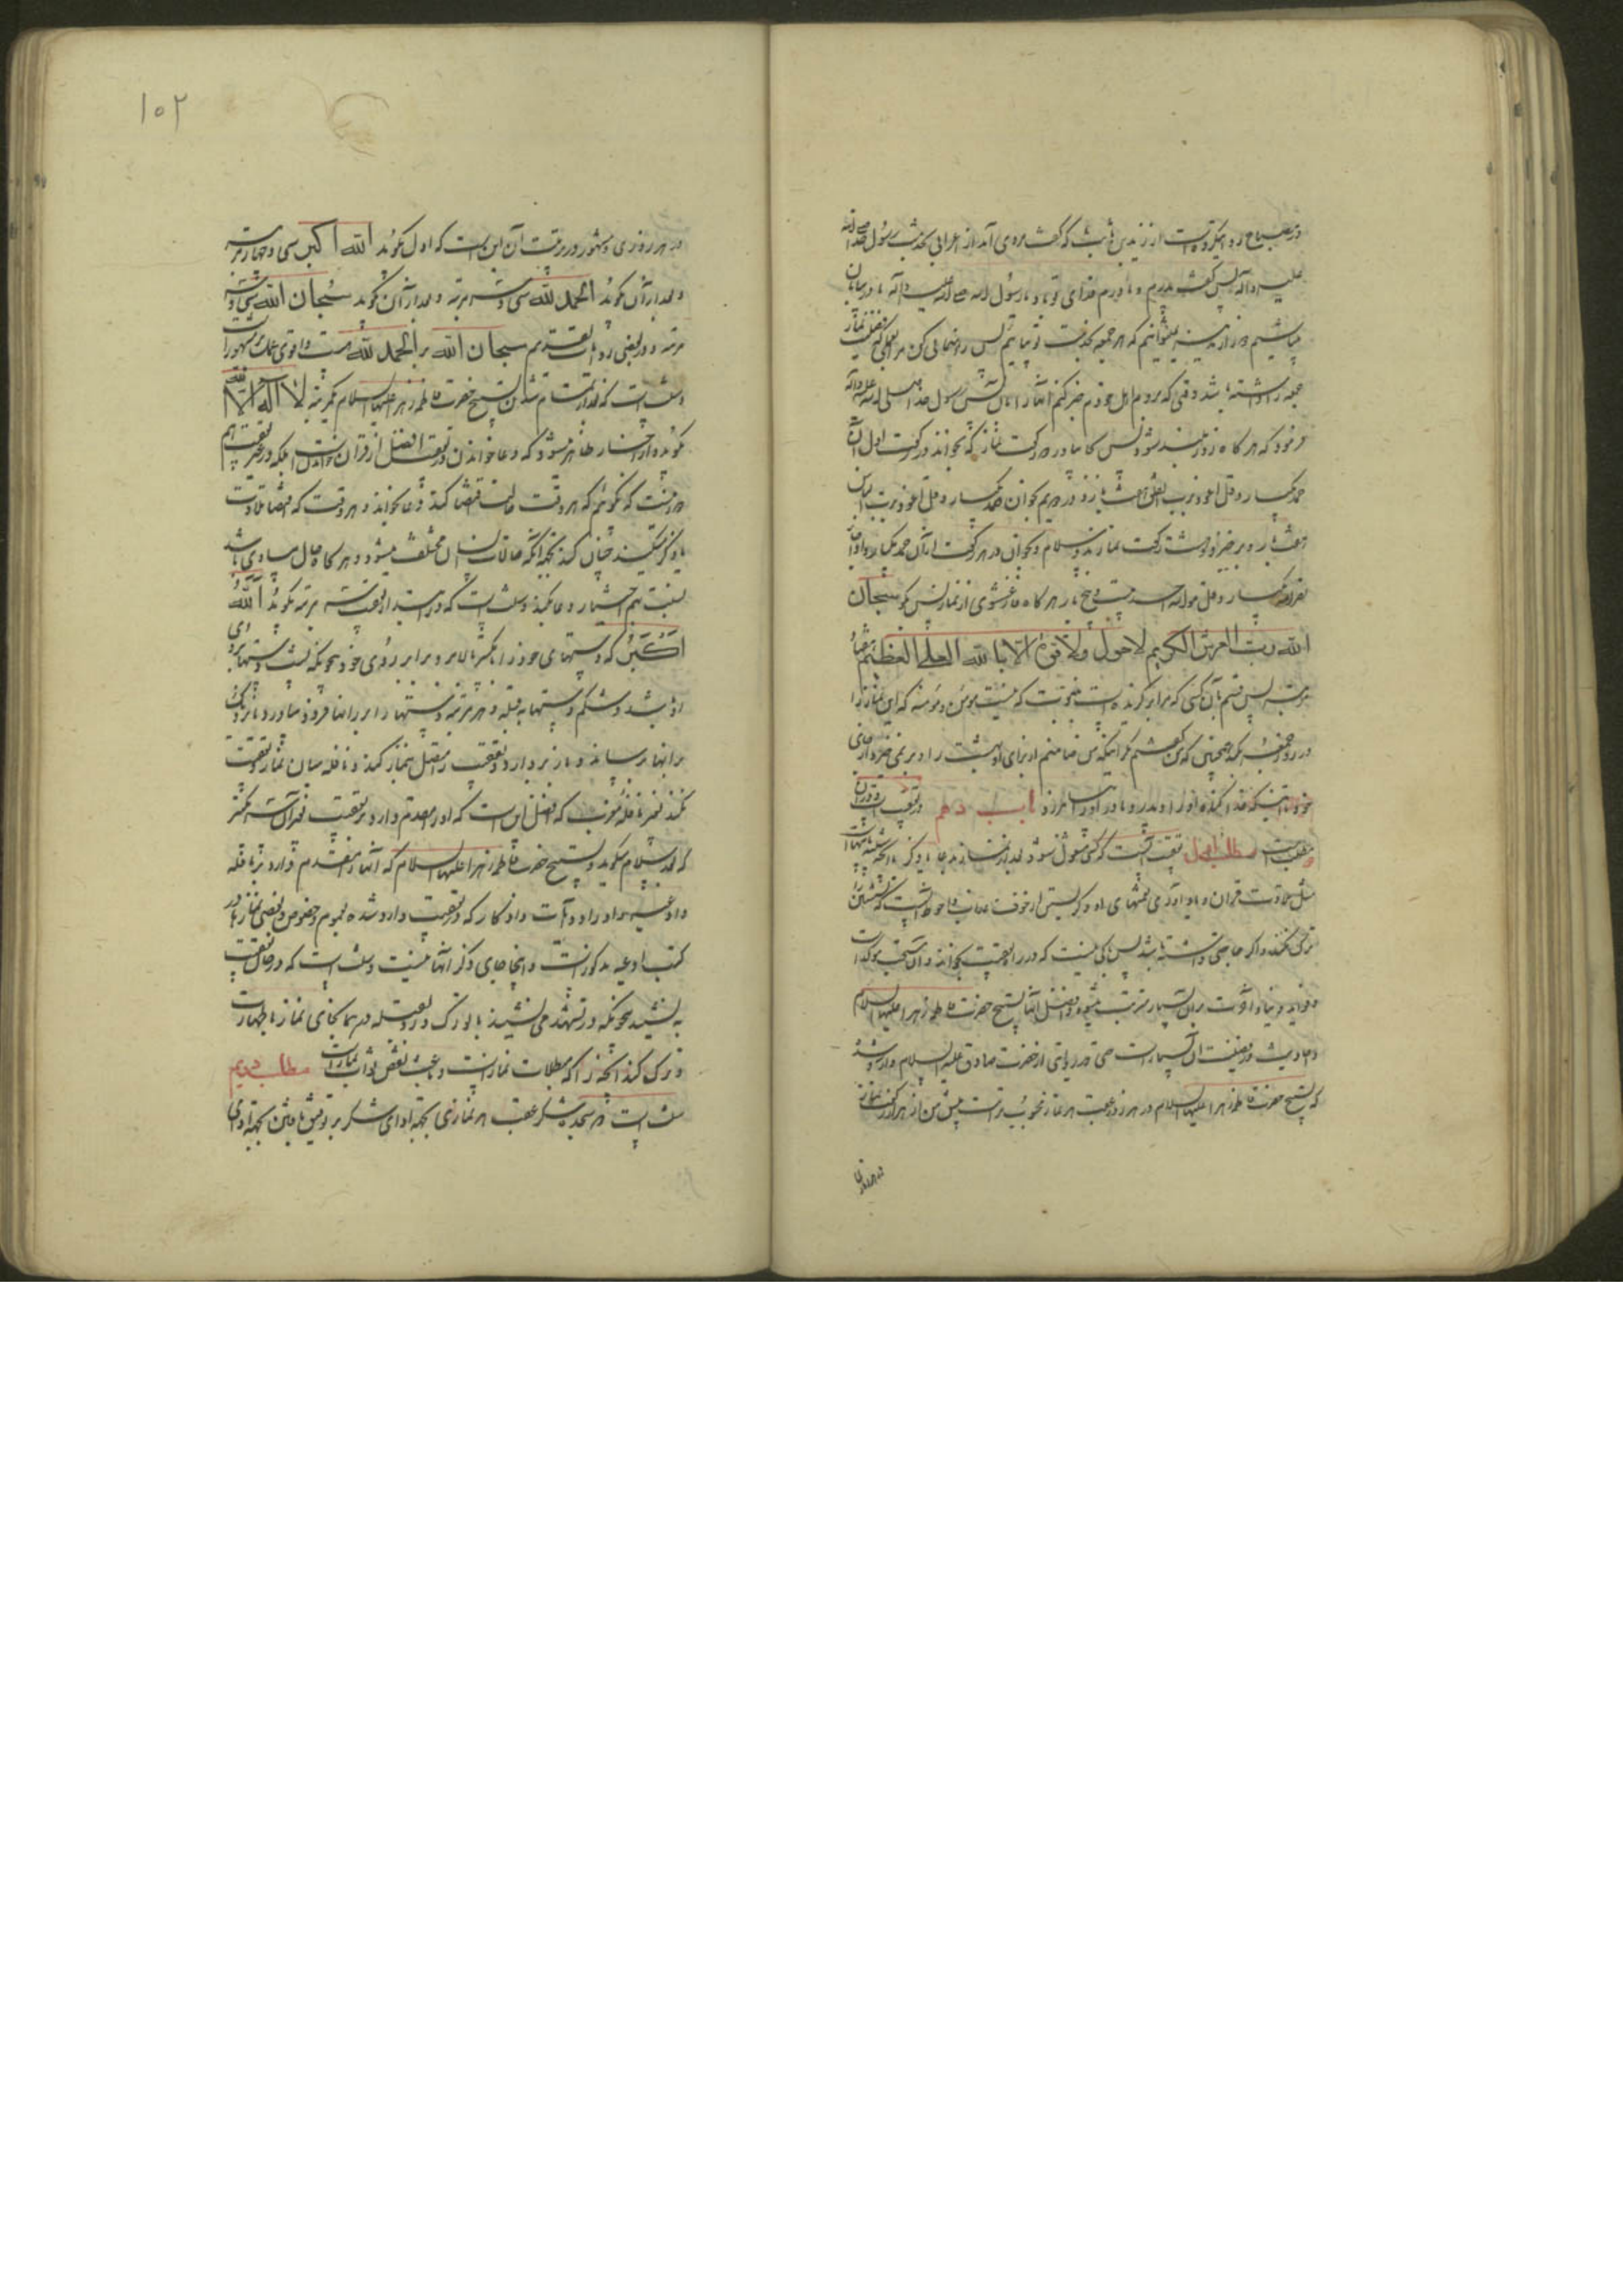 در مصباح روایت کرده است از زید بن ثابت که گفت مردی آمد از اعراب بخدمت رسول صلی الله
علیه و آله پس گفت پدرم و مادرم فدای تو باد یا رسول الله صلی الله علیه و آله ما در بیابان
میباشیم و دور از مدینه نمیتوانیم که هر جمعه بخدمت تو بیائیم پس راهنمائی کن مرا بعملی که فضیلت نماز
جمعه را داشته باشد وقتی که بروم باهل خودم خبر کنم آنها را بآن پس رسول خدا صلی الله علیه و آله
فرمود که هر گاه روز بلند شود پس دو رکعت نماز کن بخوان در رکعت اول
حمد یکبار و قل اعوذ برب الفلق هفت بار و در دویم بخوان حمد یکبار و قل اعوذ برب الناس
هفت بار و برخیز و هشت رکعت نماز بدو سلام و بخوان در هر رکعت از آن حمد یکبار و اذا جاء
نصر الله یکبار و قل هو الله احد بیست و پنج بار هر گاه فارغ شوی از نماز پس بگو سبحان
الله رب العرش الکریم لا حول ولا قوة الا بالله العلی العظیم هفتاد
مرتبه پس قسم بآن کسی که مرا برگزیده است به نبوت که نیست مؤمن و مؤمنه که این نماز را
در روز جمعه بکند همچنین که من گفتم مگر اینکه من ضامنم از برای او بهشت را و بر نمیخیزد از جای
خود تا اینکه خدا گناه او را و پدر و مادر او را بیامرزد باب دهم در تعقیب است و در آن
مطلب است مطلب اول تعقیب آنست که کسی مشغول شود بعد از نماز بدعا یا ذکر یا آنچه شبیه باینها است
مثل تلاوت قرآن و یاد آوری نعمتهای اله و گریستن از خوف عذاب و احوط آنست که نشستن را
ترک نکند و اگر حاجتی داشته باشد پس باکی نیست که در راه تعقیب بخواند و آن مستحب مؤکد است
و فواید دنیا و آخرت بر آن بسیار مترتب میشود و افضل آنها تسبیح حضرت فاطمه زهرا علیها السلام
و احادیث در فضیلت آن بسیار است حتی در روایتی از حضرت صادق علیه السلام وارد شده
که تسبیح حضرت فاطمه زهرا علیها السلام در هر روز عقب هر نماز محبوب تر است پیش من از هزار رکعت نماز
در هر روزی
۱۰۲
در هر روزی و مشهور در ترتیب آن این است که اول بگوید الله اکبر سی و چهار مرتبه
و بعد از آن بگوید الحمد لله سی و سه مرتبه و بعد از آن بگوید سبحان الله سی و سه
مرتبه و در بعضی روایات تقدیم سبحان الله بر الحمد لله هست و اقوی عمل بمشهور است
و سنت است که بعد از تمام شدن تسبیح حضرت فاطمه زهرا علیها السلام یکمرتبه لا اله الا الله
بگوید و از اخبار ظاهر میشود که دعا خواندن در تعقیب افضل از قرآن خواندن است بلکه در غیر تعقیب هم
دور نیست که بگوئیم که هر وقت حالت اقتضا کند دعا بخواند و هر وقت که اقتضا تلاوت
یا ذکر میکند چنان کند بجهة آنکه حالات انسان مختلف میشود و هر گاه حال مساوی باشد
بسبت هم اختیار دعا بکند و سنت است که در ابتداء تعقیب سه مرتبه بگوید الله
اکبر که دستهای خود را بتکبیر بالا برد برابر روی خود بنحویکه پشت دستها بروی
او باشد و شکم دستها بقبله و هر مرتبه دستها را برابر رانها فرود بیاورد تا نزدیک
برانها برساند و باز بردارد و تعقیب را متصل بنماز کند و نافله میان نماز و تعقیب
نکند بغیر نافله مغرب که افضل این است که او را مقدم دارد بر تعقیب بغیر آن سه تکبیر
که بعد سلام میگوید و تسبیح حضرت فاطمه زهرا علیها السلام که آنها را مقدم دارد بر نافله
و ادعیه و اوراد و آیات و اذکار که در تعقیب وارد شده بعموم و خصوص بعضی نمازها در
کتب ادعیه مذکور است و اینجا جای ذکر آنها نیست و سنت است که در حال تعقیب
بنشیند بنحویکه در تشهد می نشیند با تورک و رو بقبله در همان جای نماز با طهارت
و ترک کند آنچه را که مبطلات نماز است و باعث نقص ثواب نماز است مطلب دویم
سنت است در سجده شکر عقب هر نمازی بجهة ادای شکر بر توفیق یافتن بجهة ادای